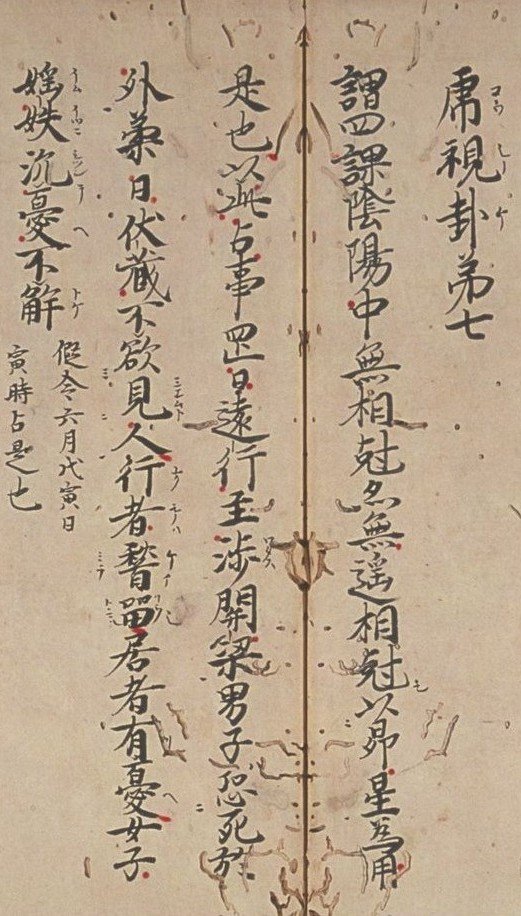 虎視卦第七
謂四課陰陽中無相尅亦無遥相尅以昴星為用
是也以此占事罡日遠行至渉開梁男子恐死於
外柔日伏蔵不欲見人行者稽留居者有憂女子
婬妷沉憂不解
假令六月戊寅日
寅時占是也